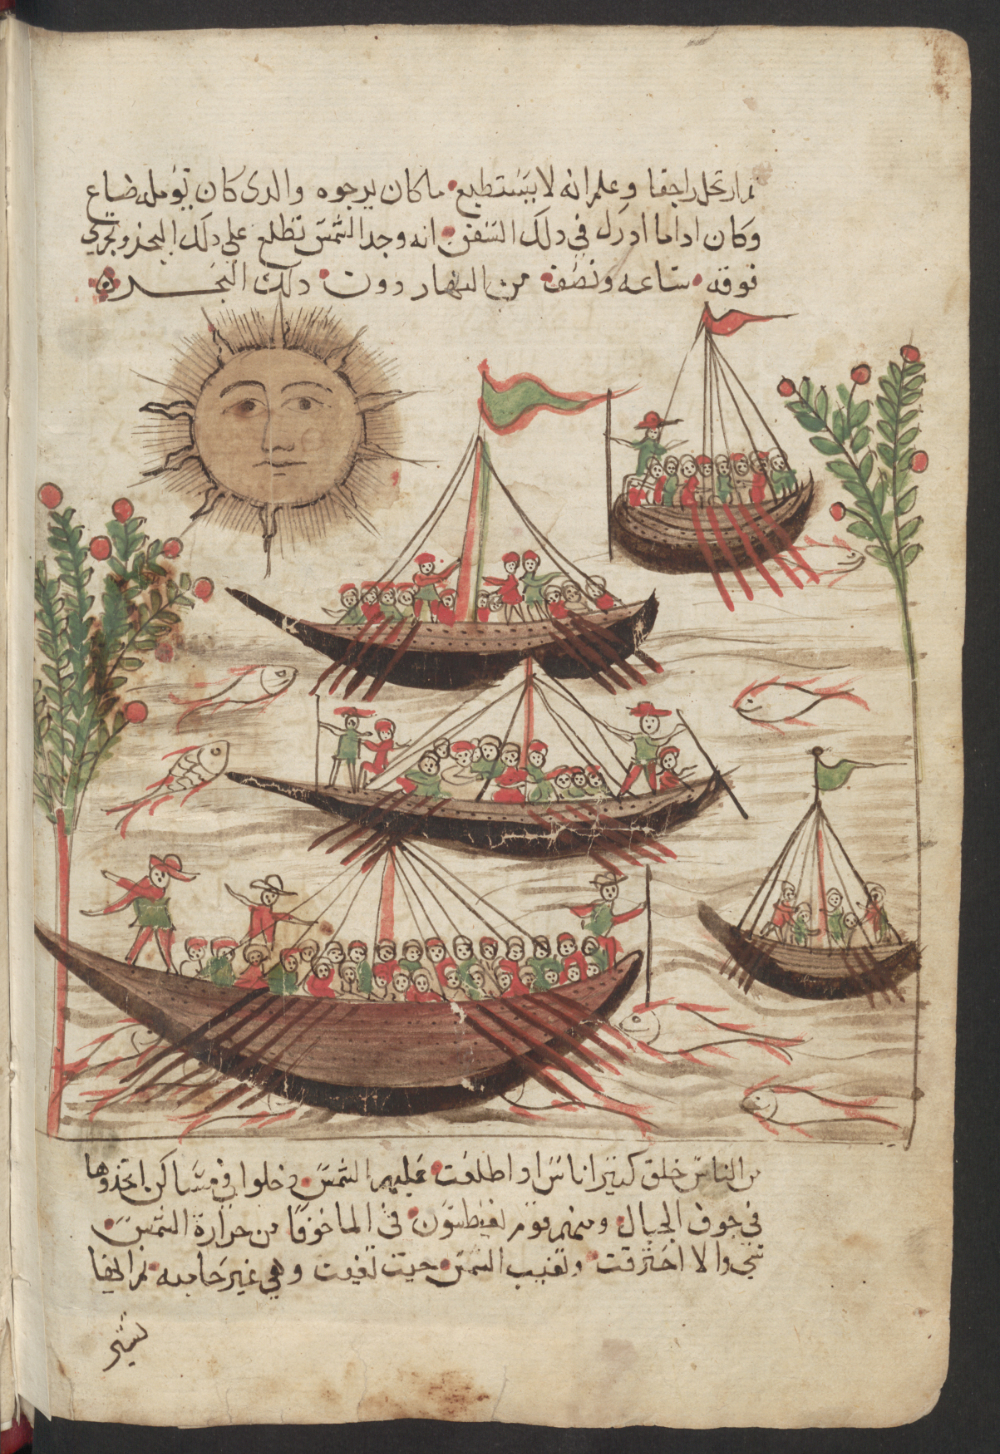 ثم ارتحل راجعا وعلم انه لا يستطيع ما كان يرجوه والدى كان يؤمله ضاع
وكان اداما ادرك في دلك السفن انه وجد الشمس تطلع على دلك البحر وتجري
فوقه ساعه ونصف من النهار دون دلك البحر
من الناس خلق كثير اناس ادا طلعت عليهم الشمس دخلوا في مساكن اتخذوها
في جوف الجبال ومنهم قوم يغيطسون في الما خوفا من حرارة الشمس
والا احترقت وتغيب الشمس حيت تغيب وهي غير حاميه ثم انها
تسير